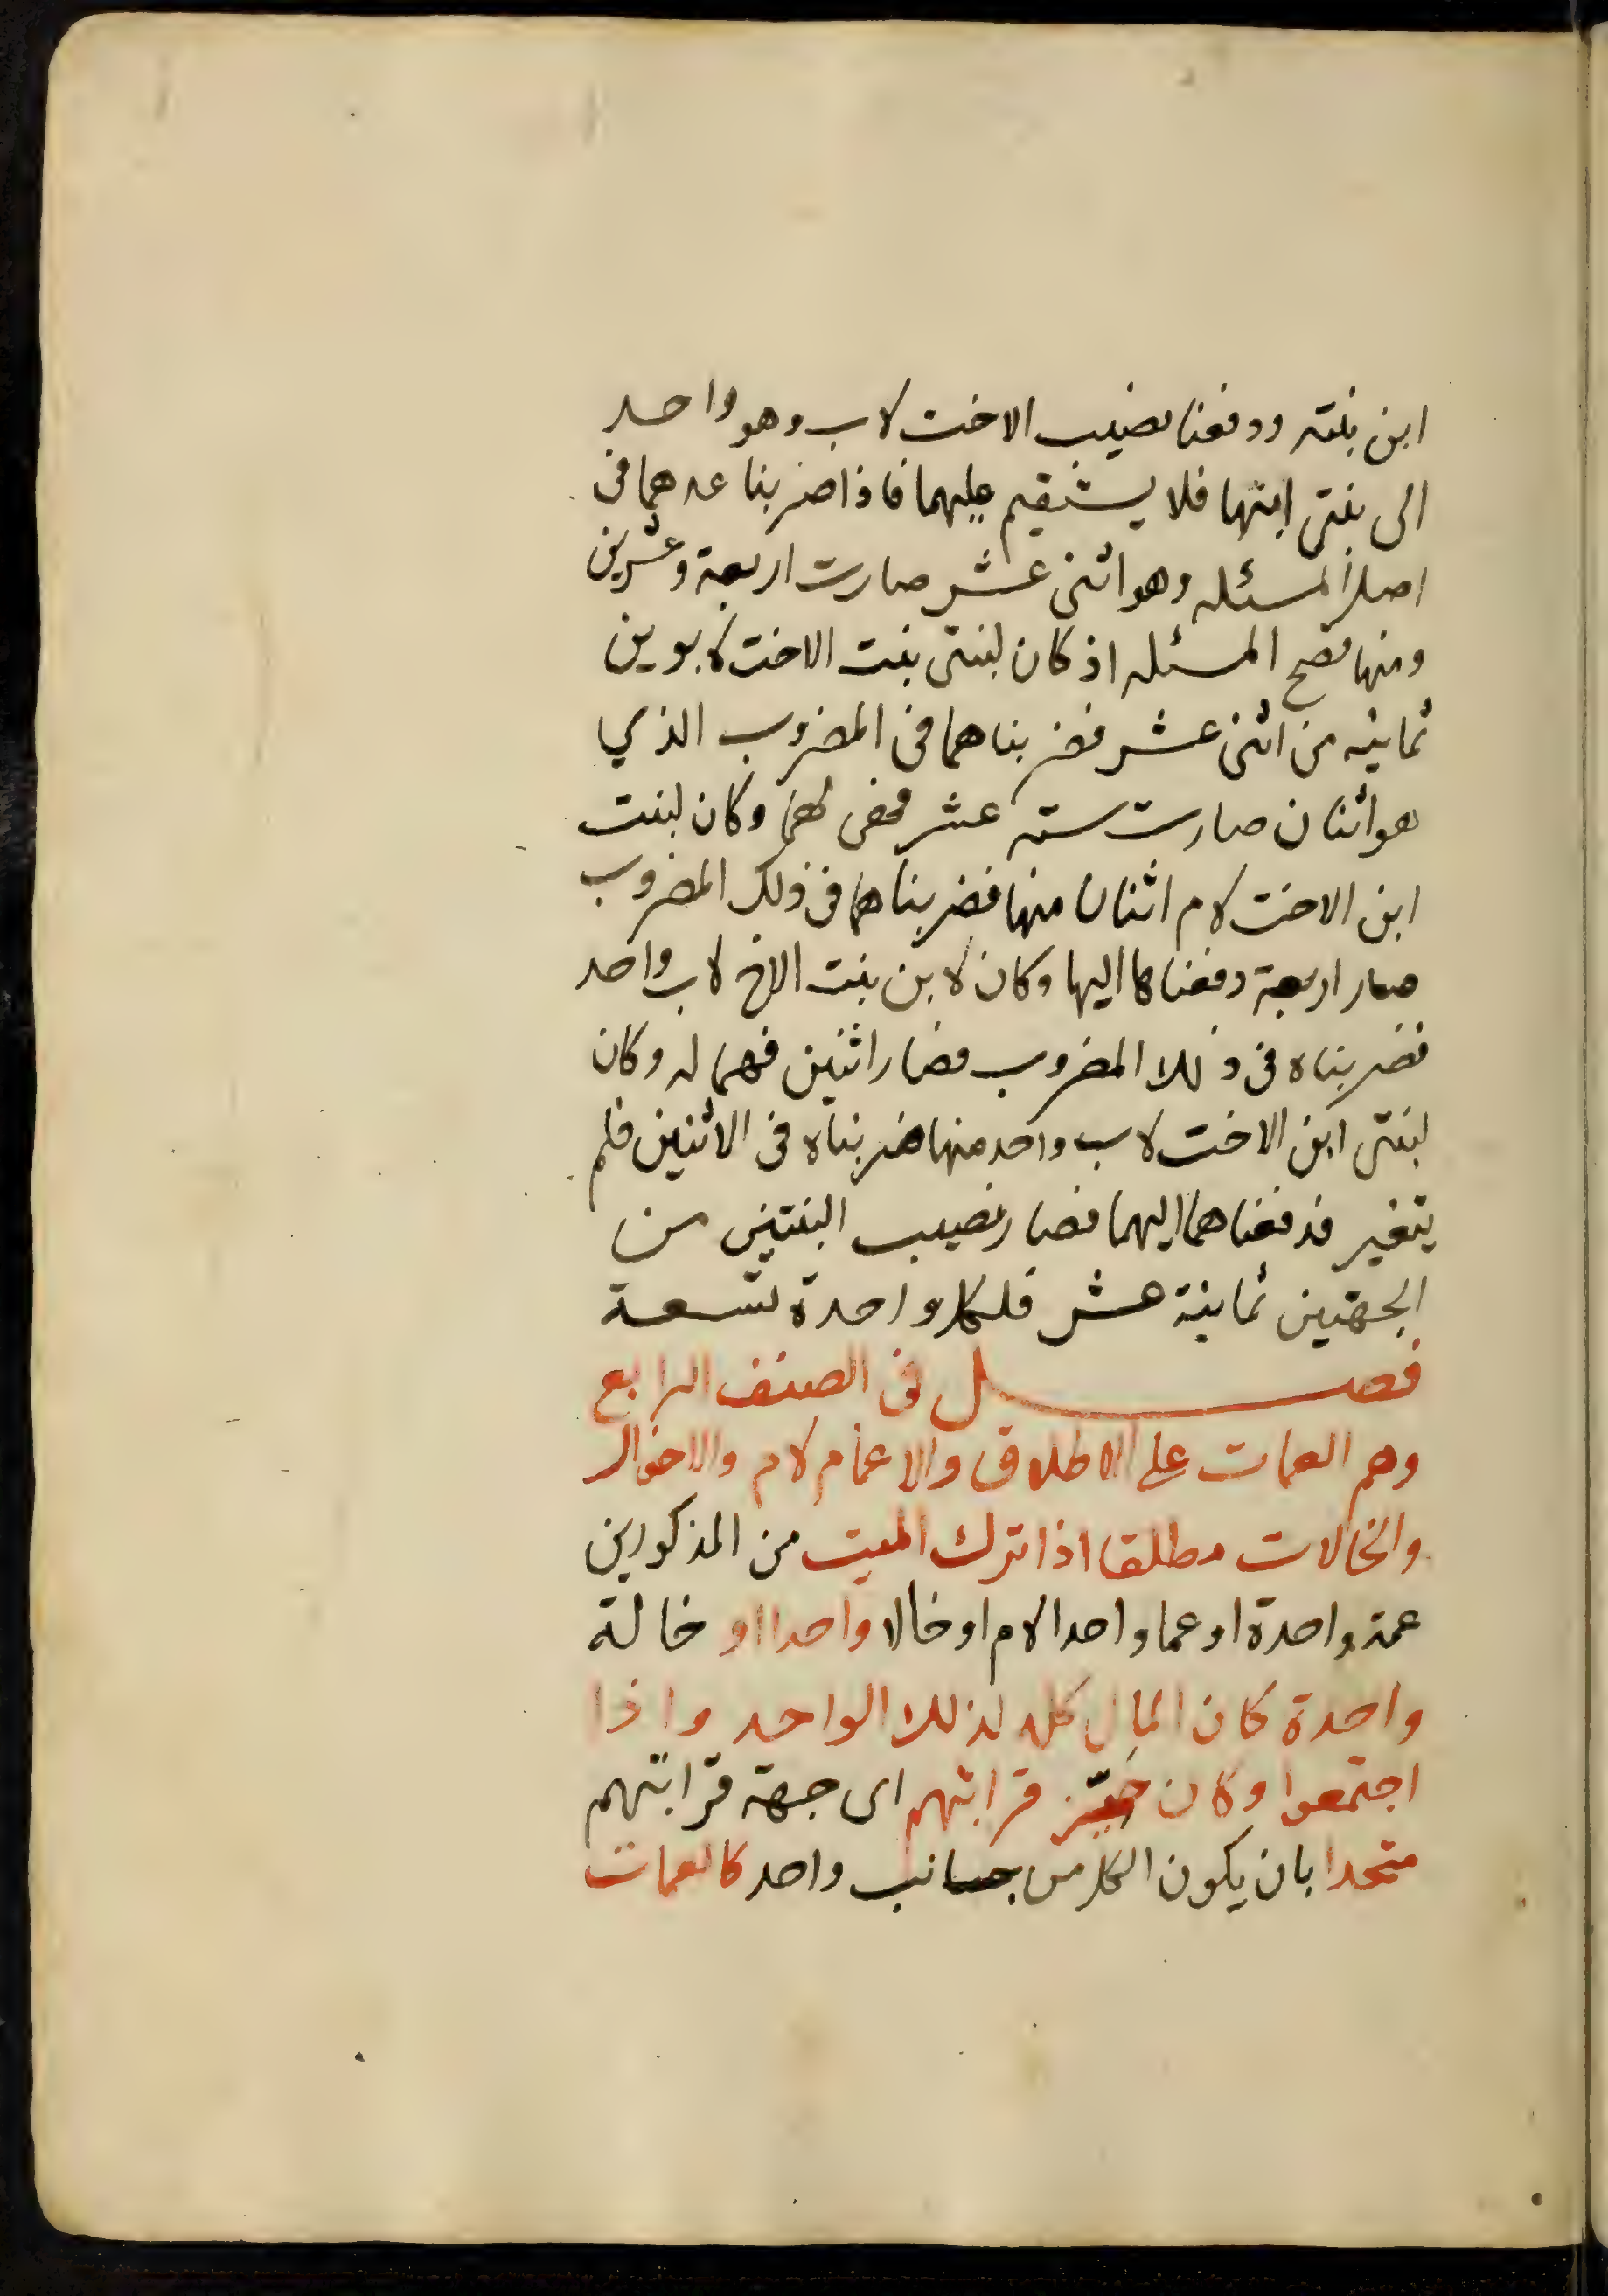 ابن بنته ودفعنا نصيب الاخت لاب وهو واحد
الى بنتى ابنها فلا يستقيم عليهما فاذا ضربنا عدهما فى
اصل المسئله وهو اثنى عشر صارت اربعة وعشرين
ومنها تصح المسئله اذ كان لبنتى بنت الاخت لابوين
ثمانيه من اثنى عشر فضربناهما فى المضروب الذي
هو اثنان صارت سته عشر فهى لهما وكان لبنت
ابن الاخت لام اثنان منها فضربناهما فى ذلك المضروب
صار اربعة دفعناها اليها وكان لابن بنت الاخ لاب واحد
فضربناه فى ذلك المضروب فصار اثنين فهما له وكان
لبنتى ابن الاخت لاب واحد منها ضربناه فى الاثنين فلم
يتغير فدفعناهما اليهما فصار نصيب البنتين من
الجهتين ثمانية عشر فلكل واحدة تسعة
فصل فى الصنف الرابع
وهم العمات على الاطلاق والاعمام لام والاخوال
والخالات مطلقا اذا ترك الميت من المذكورين
عمة واحدة او عما واحدا لام او خالا واحدا او خالة
واحدة كان المال كله لذلك الواحد واذا
اجتمعوا وكان حيز قرابتهم اى جهة قرابتهم
متحدا بان يكون الكل من جانب واحد كالعمات